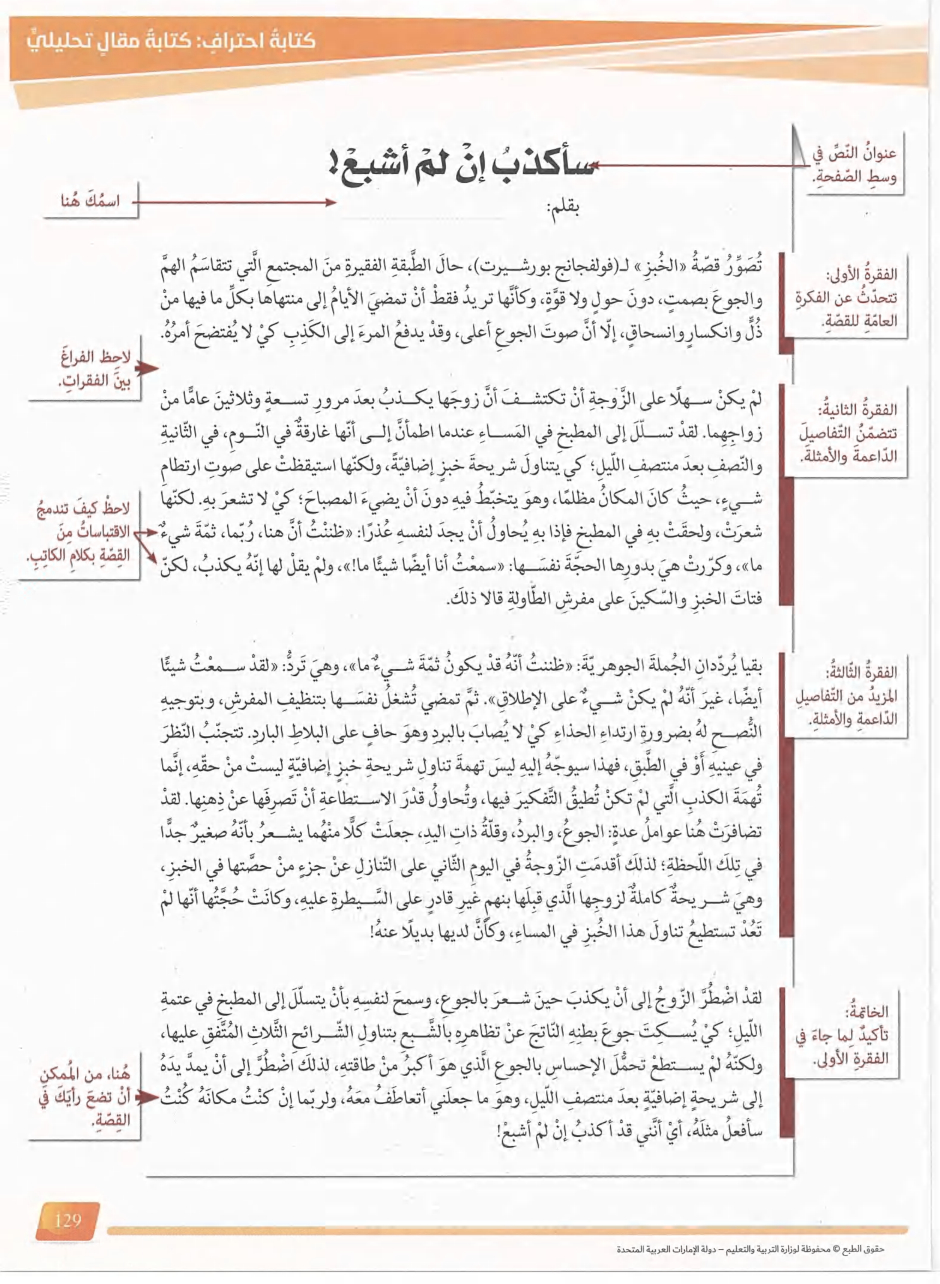 كتابةُ احترافٍ: كتابةُ مقالٍ تحليليٍّ
عنوانُ النّصِّ في
وسطِ الصّفحةِ.
سأكذبُ إنْ لمْ أشبعْ!
اسمُكَ هُنا
بقلم:
الفقرةُ الأولى:
تتحدّثُ عن الفكرةِ
العامّةِ للقصّةِ.
تُصَوِّرُ قصّةُ «الخُبزِ» لـ(فولفجانج بورشيرت)، حالَ الطَّبقةِ الفقيرةِ منَ المجتمعِ الَّتي تتقاسَمُ الهمَّ
والجوعَ بصمتٍ، دونَ حولٍ ولا قوَّةٍ، وكأنَّها تريدُ فقطْ أنْ تمضيَ الأيامُ إلى منتهاها بكلِّ ما فيها منْ
ذُلٍّ وانكسارٍ وانسحاقٍ، إلا أنَّ صوتَ الجوعِ أعلى، وقدْ يدفعُ المرءَ إلى الكَذِبِ كيْ لا يُفتضحَ أمرُهُ.
لاحِظ الفراغَ
بينَ الفقراتِ.
الفقرةُ الثانيةُ:
تتضمّنُ التّفاصيلَ
الدّاعمةَ والأمثلةَ.
لمْ يكنْ سهلًا على الزَّوجةِ أنْ تكتشفَ أنَّ زوجَها يكذبُ بعدَ مرورِ تسعةٍ وثلاثينَ عامًّا منْ
زواجِهما. لقدْ تسلّلَ إلى المطبخِ في المَساءِ عندما اطمأنَّ إلى أنّها غارقةٌ في النّومِ، في الثّانيةِ
والنّصفِ بعدَ منتصفِ اللّيلِ؛ كي يتناولَ شريحةَ خبزٍ إضافيّةً، ولكنّها استيقظتْ على صوتِ ارتطامِ
شيءٍ، حيثُ كانَ المكانُ مظلمًا، وهوَ يتخبّطُ فيهِ دونَ أنْ يضيءَ المصباحَ؛ كيْ لا تشعرَ بهِ. لكنّها
شعرَتْ، ولحقَتْ بهِ في المطبخِ فإذا بهِ يُحاولُ أنْ يجدَ لنفسهِ عُذرًا: «ظننْتُ أنَّ هنا، رُبّما، ثمّةَ شيءٌ
ما»، وكرّرتْ هيَ بدورِها الحجّةَ نفسَها: «سمعْتُ أنا أيضًا شيئًا ما!»، ولمْ يقلْ لها إنّهُ يكذبُ، لكنّ
فتاتَ الخبزِ والسّكينَ على مفرشِ الطّاولةِ قالا ذلكَ.
لاحظْ كيفَ تندمجُ
الاقتباساتُ مِنَ
القِصّةِ بكلامِ الكاتِبِ.
الفقرةُ الثّالثةُ:
المزيدُ من التّفاصيلِ
الدّاعمةِ والأمثلةِ.
بقيا يُردّدانِ الجُملةَ الجوهريّةَ: «ظننتُ أنّهُ قدْ يكونُ ثمّةَ شيءٌ ما»، وهيَ تَردُّ: «لقدْ سمعْتُ شيئًا
أيضًا، غيرَ أنّهُ لمْ يكنْ شيءٌ على الإطلاقِ». ثمَّ تمضي تُشغلُ نفسَها بتنظيفِ المفرشِ، وبتوجيهِ
النُّصحِ لهُ بضرورةِ ارتداءِ الحذاءِ كيْ لا يُصابَ بالبردِ وهوَ حافٍ على البلاطِ الباردِ. تتجنّبُ النّظرَ
في عينيهِ أوْ في الطّبقِ، فهذا سيوجّهُ إليهِ ليسَ تهمةَ تناولِ شريحةِ خبزٍ إضافيّةٍ ليستْ منْ حقّهِ، إنّما
تُهمَةَ الكذبِ الَّتي لمْ تكنْ تُطيقُ التَّفكيرَ فيها، وتُحاولُ قدْرَ الاستطاعةِ أنْ تَصرِفَها عنْ ذِهنِها. لقدْ
تضافرَتْ هُنا عواملُ عدةٍ: الجوعُ، والبردُ، وقلّةُ ذاتِ اليدِ، جعلَتْ كلًّا منْهُما يشعرُ بأنّهُ صغيرٌ جدًّا
في تِلكَ اللّحظةِ؛ لذلكَ أقدمَتِ الزّوجةُ في اليومِ الثّاني على التّنازلِ عنْ جزءٍ منْ حصَّتها في الخبزِ،
وهيَ شريحةٌ كاملةٌ لزوجِها الَّذي قبِلَها بنهمٍ غيرِ قادرٍ على السَّيطرةِ عليهِ، وكانَتْ حُجَّتُها أنّها لمْ
تَعُدْ تستطيعُ تناولَ هذا الخُبزِ في المساءِ، وكأنَّ لديها بديلًا عنهُ!
الخاتمةُ:
تأكيدٌ لِما جاءَ في
الفقرةِ الأولى.
لقدْ اضْطُرَّ الزّوجُ إلى أنْ يكذبَ حينَ شعرَ بالجوعِ، وسمحَ لنفسِهِ بأنْ يتسلّلَ إلى المطبخِ في عتمةِ
اللّيلِ؛ كيْ يُسكِتَ جوعَ بطنِهِ النّاتجَ عنْ تظاهرِهِ بالشَّبعِ بتناولِ الشّرائحِ الثَّلاثِ المُتَّفقِ عليها،
ولكنّهُ لمْ يستطعْ تحمُّلَ الإحساسِ بالجوعِ الَّذي هوَ أكبرُ منْ طاقتهِ، لذلكَ اضْطُرَّ إلى أنْ يمدَّ يدَهُ
إلى شريحةٍ إضافيّةٍ بعدَ منتصفِ اللّيلِ، وهوَ ما جعلَني أتعاطَفُ معَهُ، ولربّما إنْ كنْتُ مكانَهُ كُنْتُ
سأفعلُ مثلَهُ، أيْ أنّني قدْ أكذبُ إنْ لمْ أشبعْ!
هُنا، من المُمكنِ
أنْ تضعَ رأيَكَ في
القِصّةِ.
129
حقوق الطبع © محفوظة لوزارة التربية والتعليم – دولة الإمارات العربية المتحدة